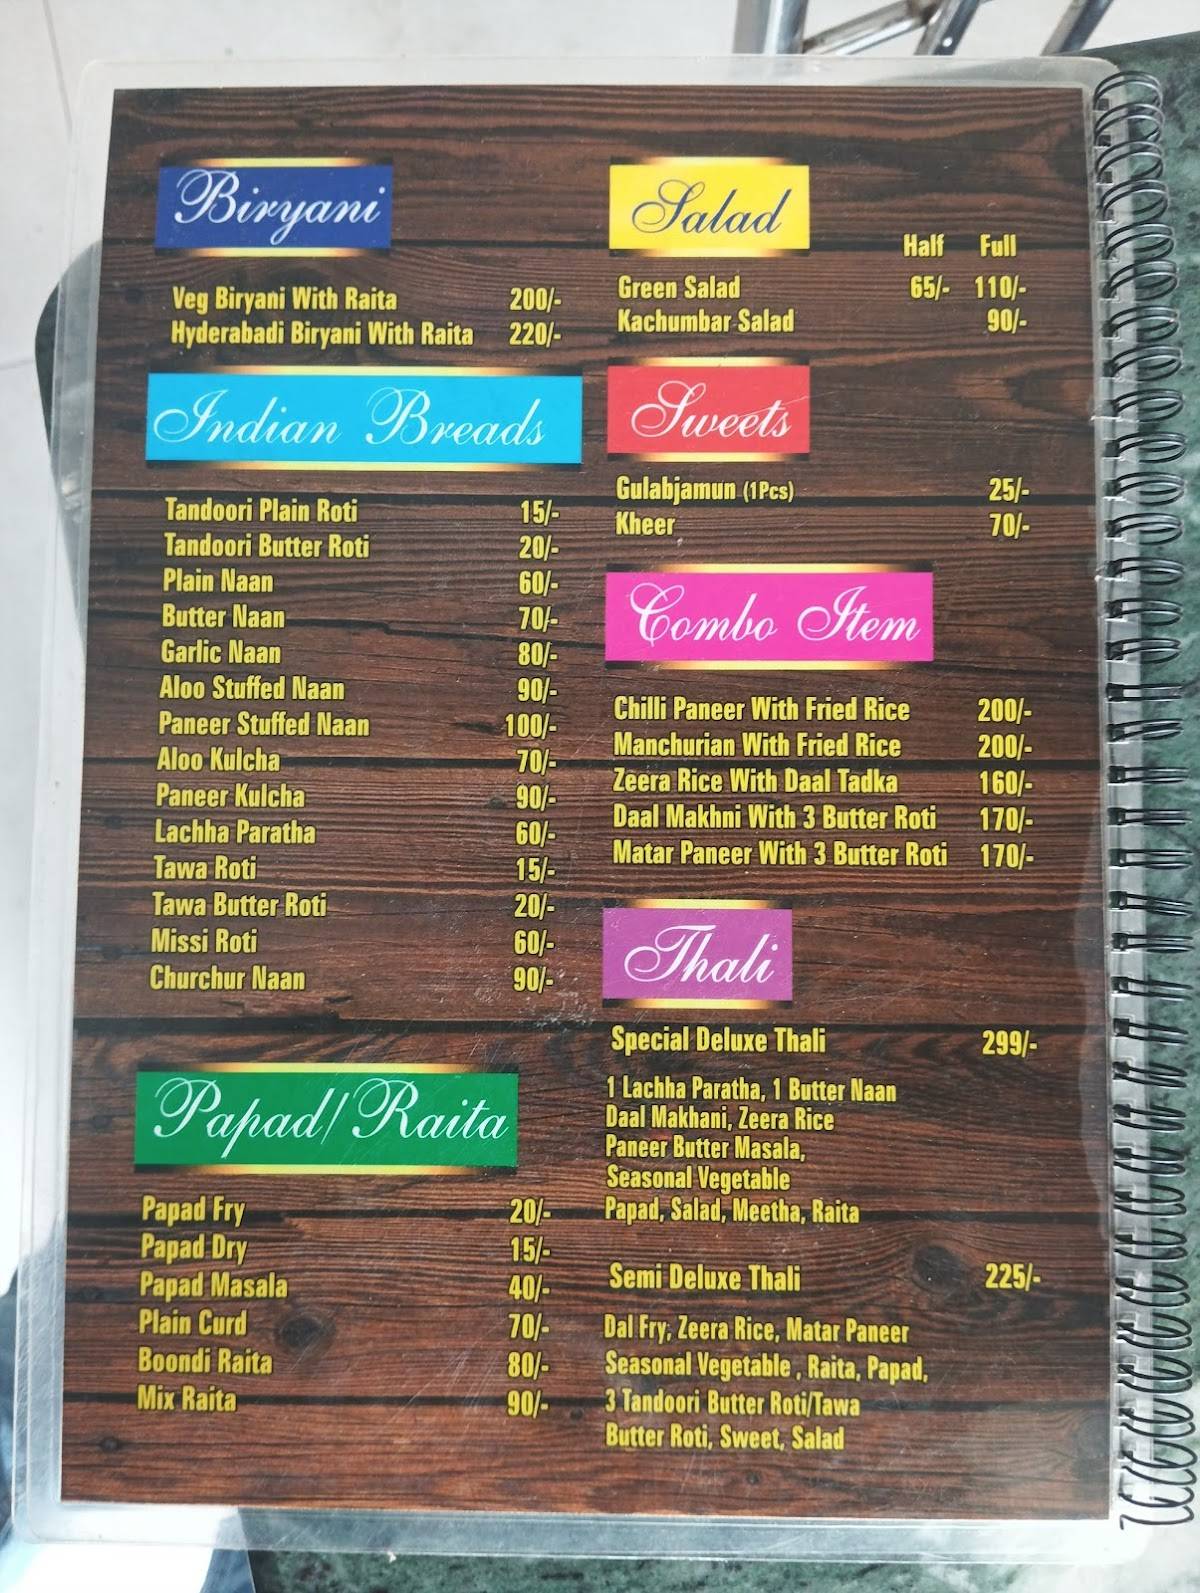 Biryani
Veg Biryani With Raita 200/-
Hyderabadi Biryani With Raita 220/-
Indian Breads
Tandoori Plain Roti 15/-
Tandoori Butter Roti 20/-
Plain Naan 60/-
Butter Naan 70/-
Garlic Naan 80/-
Aloo Stuffed Naan 90/-
Paneer Stuffed Naan 100/-
Aloo Kulcha 70/-
Paneer Kulcha 90/-
Lachha Paratha 60/-
Tawa Roti 15/-
Tawa Butter Roti 20/-
Missi Roti 60/-
Churchur Naan 90/-
Papad/Raita
Papad Fry 20/-
Papad Dry 15/-
Papad Masala 40/-
Plain Curd 70/-
Boondi Raita 80/-
Mix Raita 90/-
Salad
Half Full
Green Salad 65/- 110/-
Kachumbar Salad 90/-
Sweets
Gulabjamun (1Pcs) 25/-
Kheer 70/-
Combo Item
Chilli Paneer With Fried Rice 200/-
Manchurian With Fried Rice 200/-
Zeera Rice With Daal Tadka 160/-
Daal Makhni With 3 Butter Roti 170/-
Matar Paneer With 3 Butter Roti 170/-
Thali
Special Deluxe Thali 299/-
1 Lachha Paratha, 1 Butter Naan
Daal Makhani, Zeera Rice
Paneer Butter Masala,
Seasonal Vegetable
Papad, Salad, Meetha, Raita
Semi Deluxe Thali 225/-
Dal Fry, Zeera Rice, Matar Paneer
Seasonal Vegetable , Raita, Papad,
3 Tandoori Butter Roti/Tawa
Butter Roti, Sweet, Salad